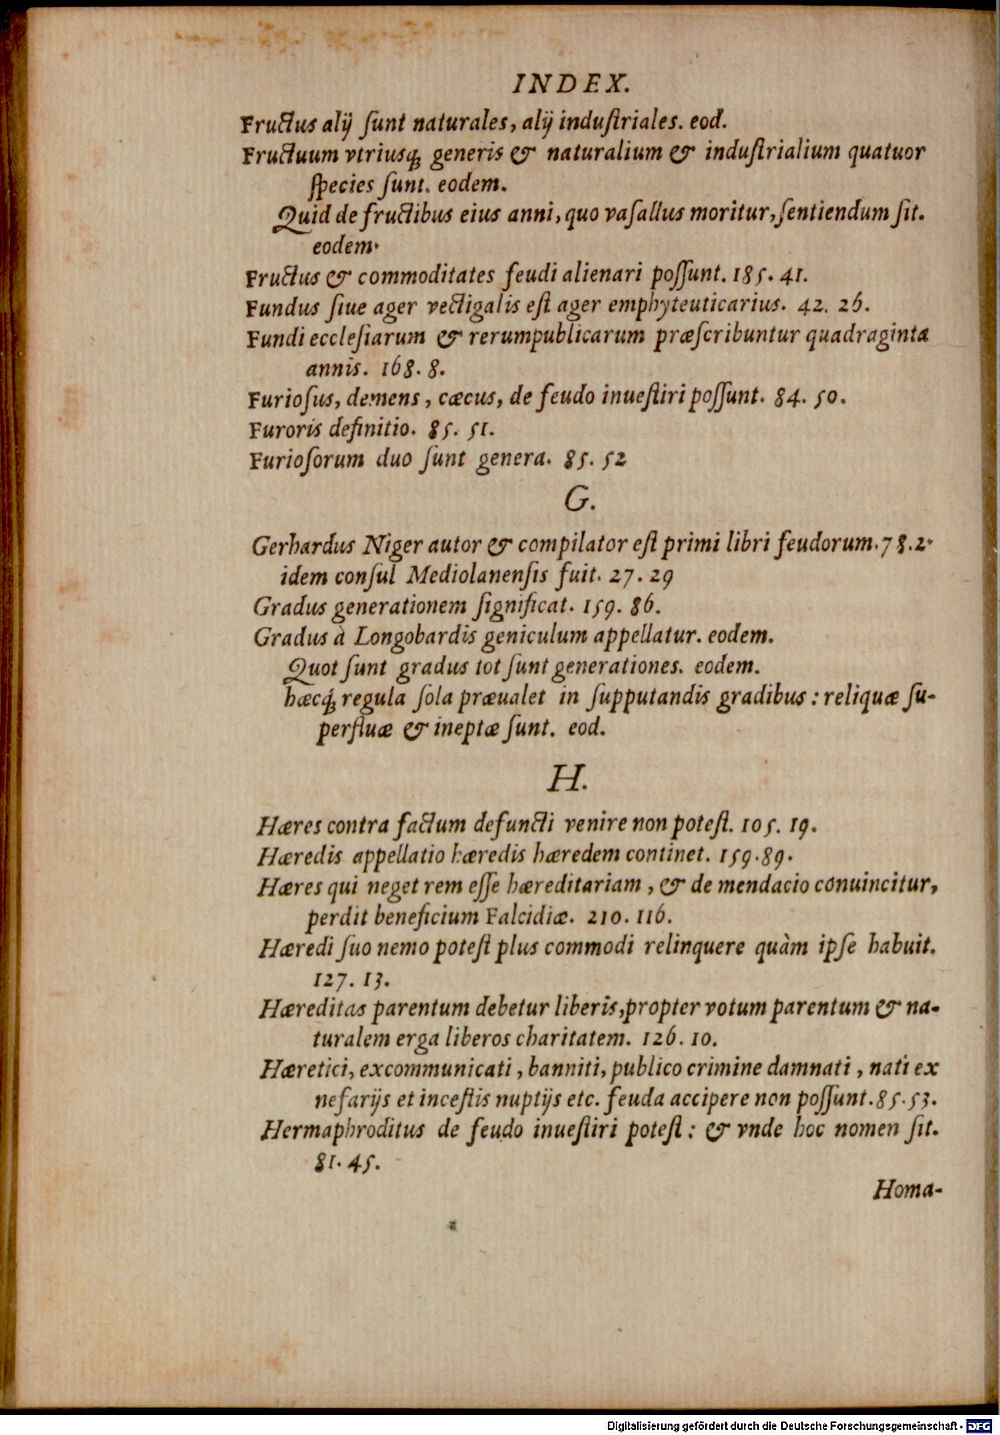 INDEX.
Fructus alij ſunt naturales, alij induſtriales. eod.
Fructuum vtriusq́; generis & naturalium & induſtrialium quatuor
ſpecies ſunt. eodem.
Quid de fructibus eius anni, quo vaſallus moritur, ſentiendum ſit.
eodem.
Fructus & commoditates feudi alienari poſſunt. 185. 41.
Fundus ſiue ager vectigalis eſt ager emphyteuticarius. 42. 26.
Fundi eccleſiarum & rerumpublicarum præſcribuntur quadraginta
annis. 168. 8.
Furioſus, demens, cæcus, de feudo inueſtiri poſſunt. 84. 50.
Furoris definitio. 85. 51.
Furioſorum duo ſunt genera. 85. 52
G.
Gerhardus Niger autor & compilator eſt primi libri feudorum. 78. 2.
idem conſul Mediolanenſis fuit. 27. 29
Gradus generationem ſignificat. 159. 86.
Gradus à Longobardis geniculum appellatur. eodem.
Quot ſunt gradus tot ſunt generationes. eodem.
hæcq́; regula ſola præualet in ſupputandis gradibus: reliquæ ſu-
perfluæ & ineptæ ſunt. eod.
H.
Hæres contra factum defuncti venire non poteſt. 105. 19.
Hæredis appellatio hæredis hæredem continet. 159. 89.
Hæres qui neget rem eſſe hæreditariam, & de mendacio conuincitur,
perdit beneficium Falcidiæ. 210. 116.
Hæredi ſuo nemo poteſt plus commodi relinquere quàm ipſe habuit.
127. 13.
Hæreditas parentum debetur liberis, propter votum parentum & na-
turalem erga liberos charitatem. 126. 10.
Hæretici, excommunicati, banniti, publico crimine damnati, nati ex
nefarijs et inceſtis nuptijs etc. feuda accipere non poſſunt. 85. 53.
Hermaphroditus de feudo inueſtiri poteſt: & vnde hoc nomen ſit.
81. 45.
Homa-
Digitalisierung gefördert durch die Deutsche Forschungsgemeinschaft - DFG